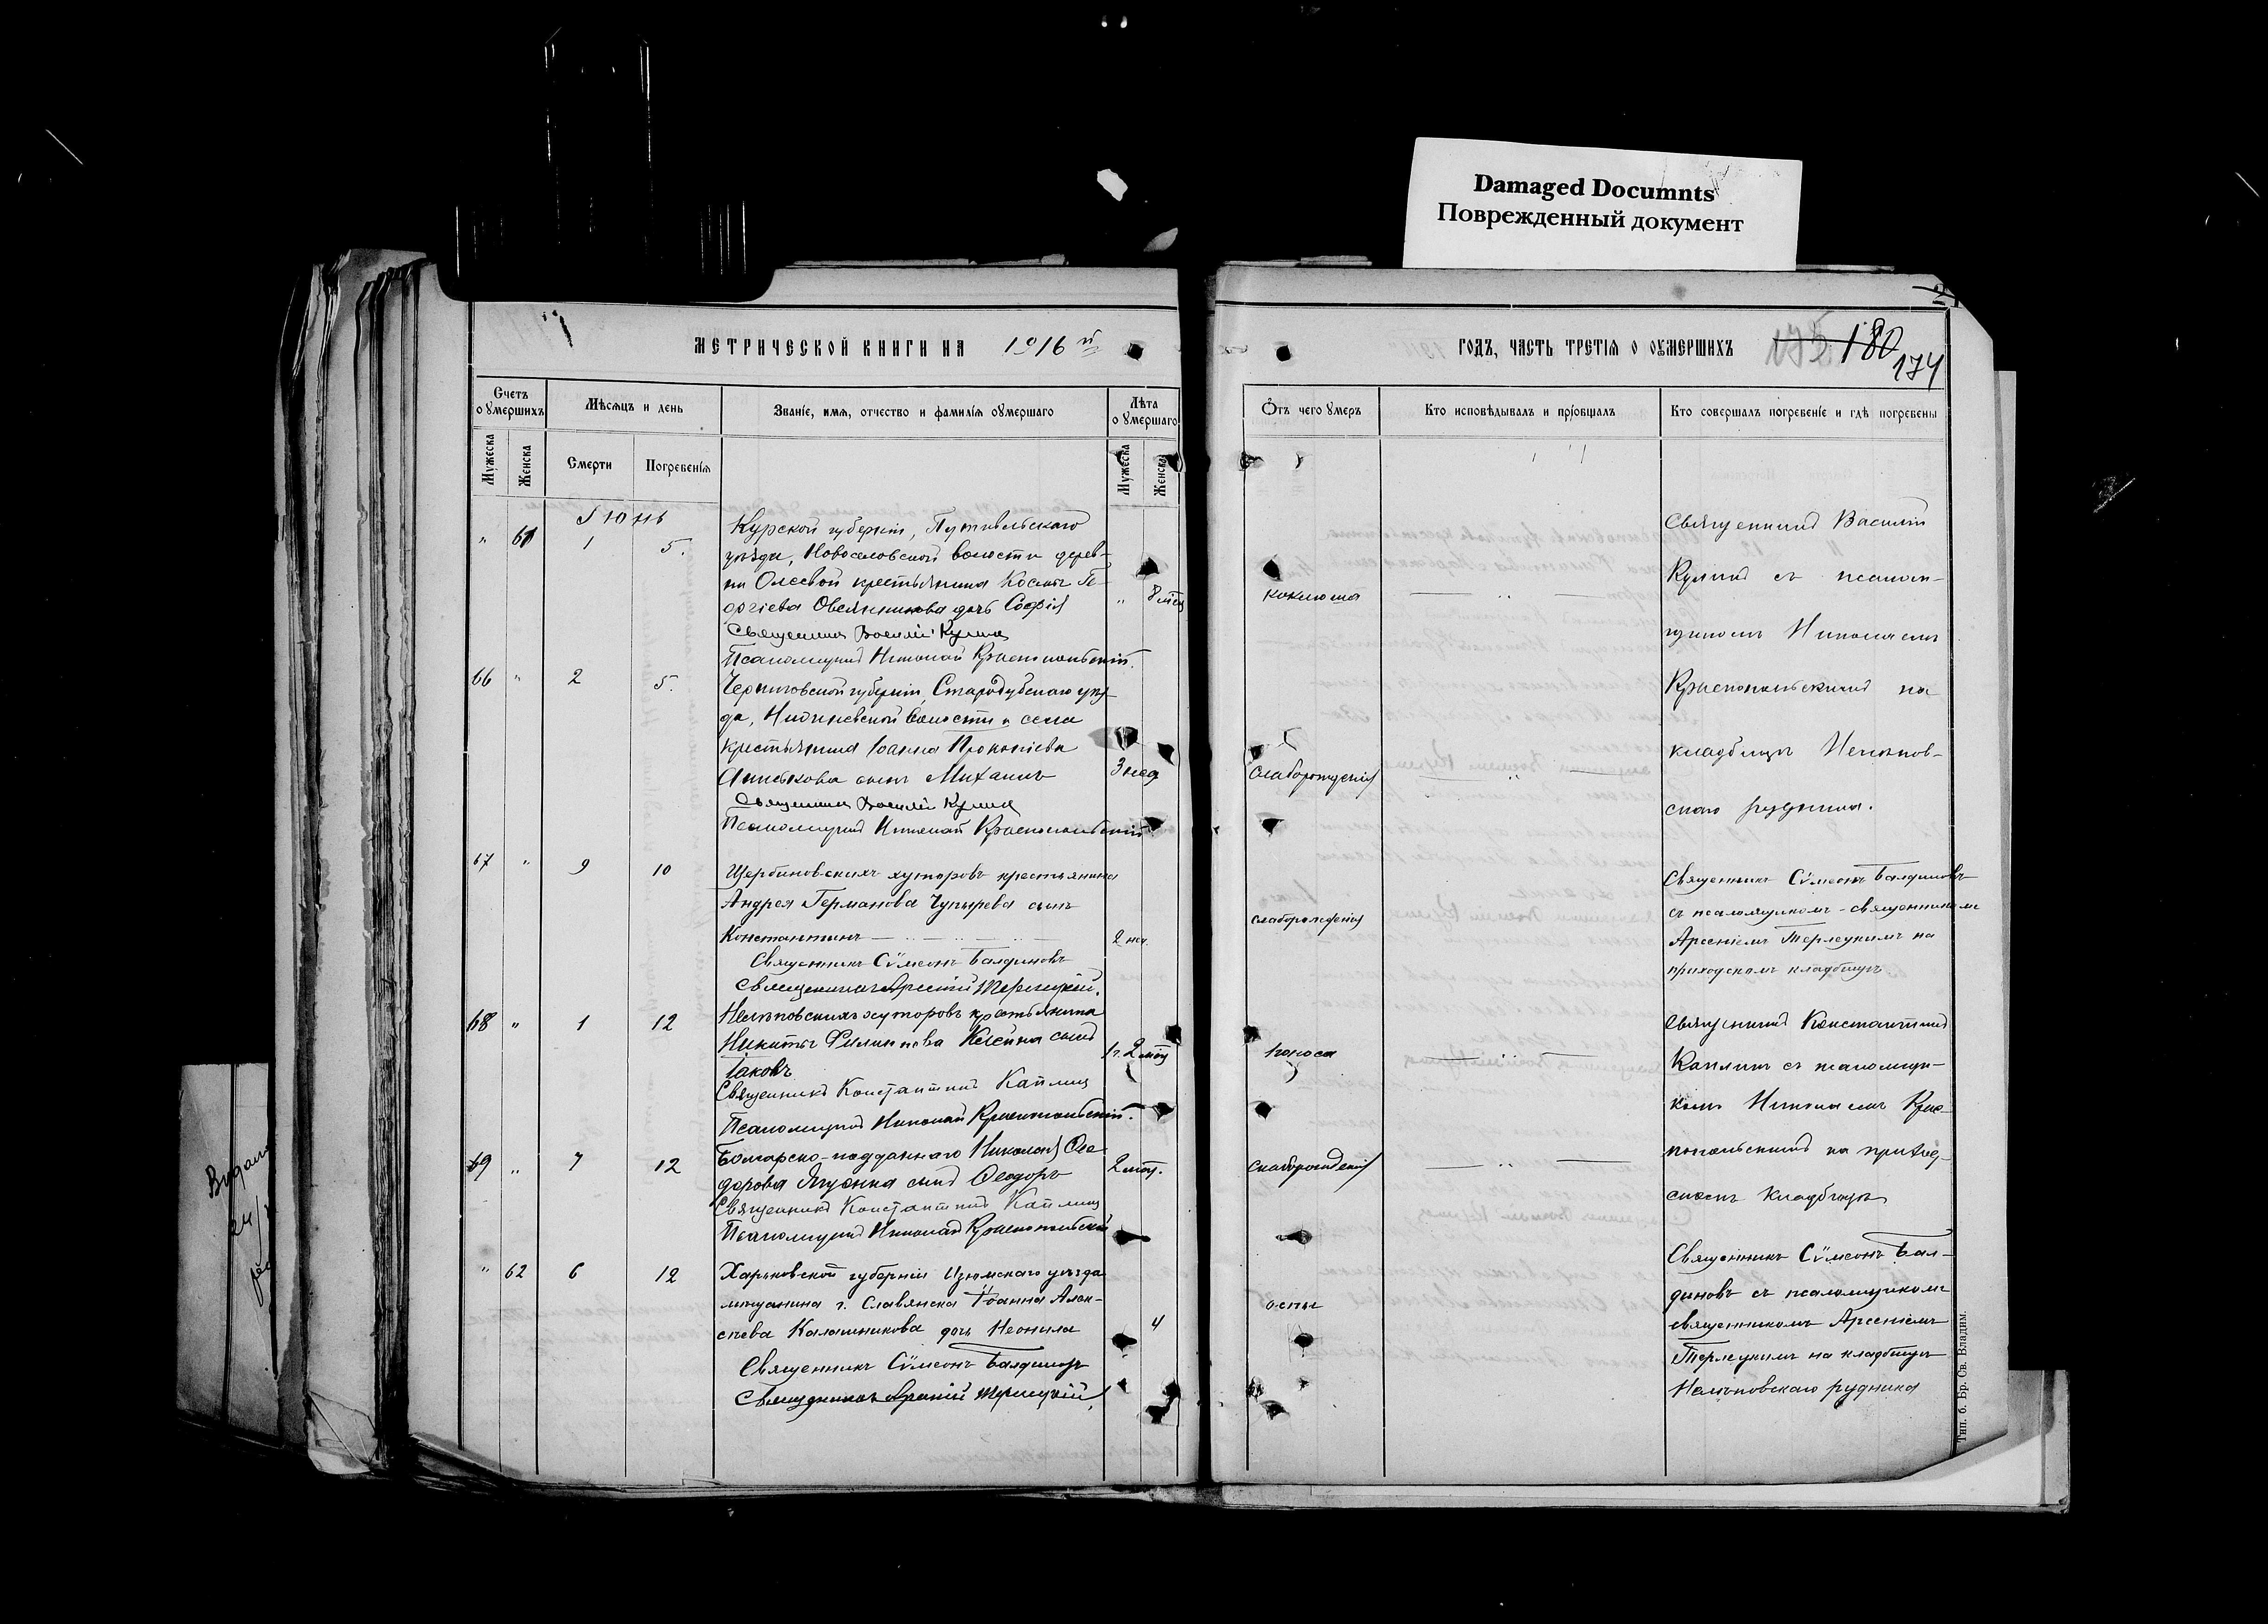 Damaged Documnts
Поврежденный документ
МЕТРИЧЕСКОЙ КНИГИ НА 1916 й
ГОДЪ, ЧАСТЬ ТРЕТІЯ О ОУМЕРШИХЪ
180
174
Счетъ оумершихъ
Мѣсяцъ и день
Званіе, имя, отчество и фамилія оумершаго
Лѣта оумершаго
Мужеска
Женска
Смерти
Погребенія
Мужеска
Женска
Отъ чего умеръ
Кто исповѣдывалъ и пріобщалъ
Кто совершалъ погребеніе и гдѣ погребены
Іюнь
" 61 1 5.
Курской губерніи, Путивльскаго
уѣзда, Новослободской волости дерев-
ни крестьянина Космы Ге-
оргіева Овсянникова дочь Софія
" 8 мѣс
коклюша
Священникъ Василій Куликъ
Псаломщикъ Николай Краснопольскій.
Священникъ Василій
Куликъ съ псалом-
щикомъ Николаемъ
Краснопольскимъ на
кладбищѣ Нелѣпов-
скаго рудника.
66 " 2 5.
Черниговской губерніи, Стародубскаго уѣз-
да, волости и села
крестьянина Іоанна Прокопіева
сынъ Михаилъ
3 нед
слаборожденія
Священникъ Василій Куликъ
Псаломщикъ Николай Краснопольскій
67 " 9 10
Щербиновскихъ хуторовъ крестьянина
Андрея Германова Чупырева сынъ
Константинъ
2 нед.
слаборожденія
Священникъ Сѵмеонъ Балдиновъ
Священникъ Арсеній Терлецкій.
Священникъ Сѵмеонъ Балдиновъ
съ псаломщикомъ-священникомъ
Арсеніемъ Терлецкимъ на
приходскомъ кладбищѣ
68 " 1 12
Нелѣповскихъ хуторовъ крестьянина
Никиты Филиппова сынъ
Іаковъ
1 г. 2 мѣс
поноса
Священникъ Константинъ Каплинъ
Псаломщикъ Николай Краснопольскій.
Священникъ Константинъ
Каплинъ съ псаломщи-
комъ Николаемъ Крас-
нопольскимъ на приход-
скомъ кладбищѣ
69 " 7 12
Болгарско-подданнаго Николая Ѳео-
дорова сынъ Ѳеодоръ
2 мѣс.
слаборожденія
Священникъ Константинъ Каплинъ
Псаломщикъ Николай Краснопольскій
" 62 6 12
Харьковской губерніи Изюмскаго уѣзда
мѣщанина г. Славянска Іоанна Алек-
сѣева Калашникова дочь Неонила
4
оспы
Священникъ Сѵмеонъ Балдиновъ
Священникъ Арсеній Терлецкій,
Священникъ Сѵмеонъ Бал-
диновъ съ псаломщикомъ
священникомъ Арсеніемъ
Терлецкимъ на кладбищѣ
Нелѣповскаго рудника
Тип. б. Бр. Св. Владим.